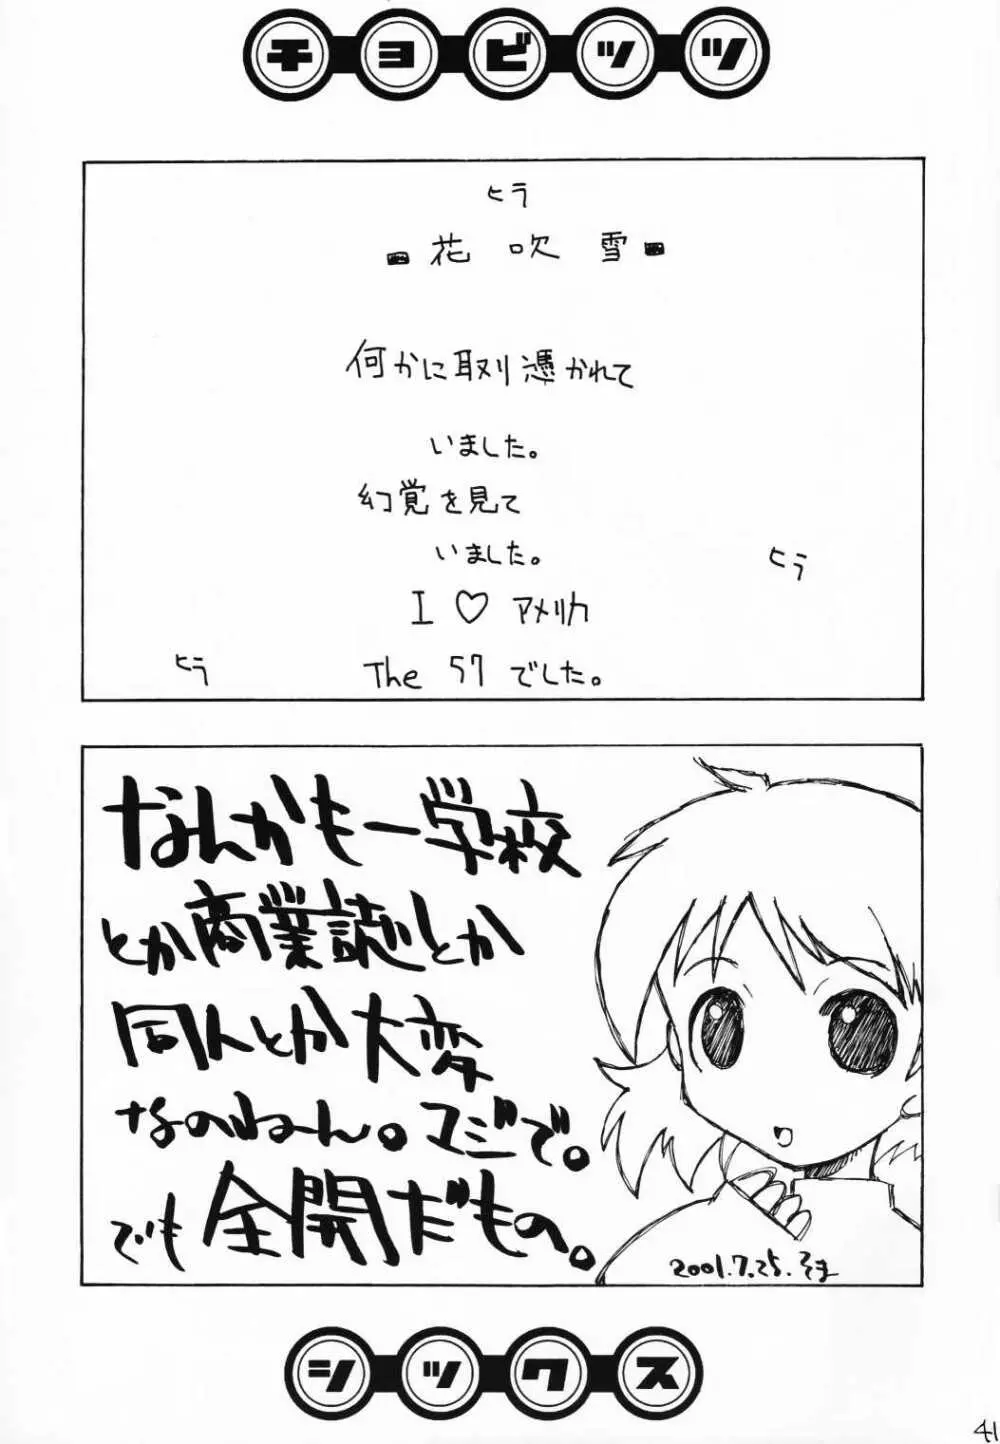 チョビッツ
ヒラ
花吹雪
何かに取り憑かれて
いました。
幻覚を見て
いました。
ヒラ
I ♡ アメリカ
ヒラ
The 57 でした。
なんかもー学校
とか商業誌とか
同人とか大変
なのねーん。マジで。
でも全開だもの。
2001.7.25. そま
シックス
41